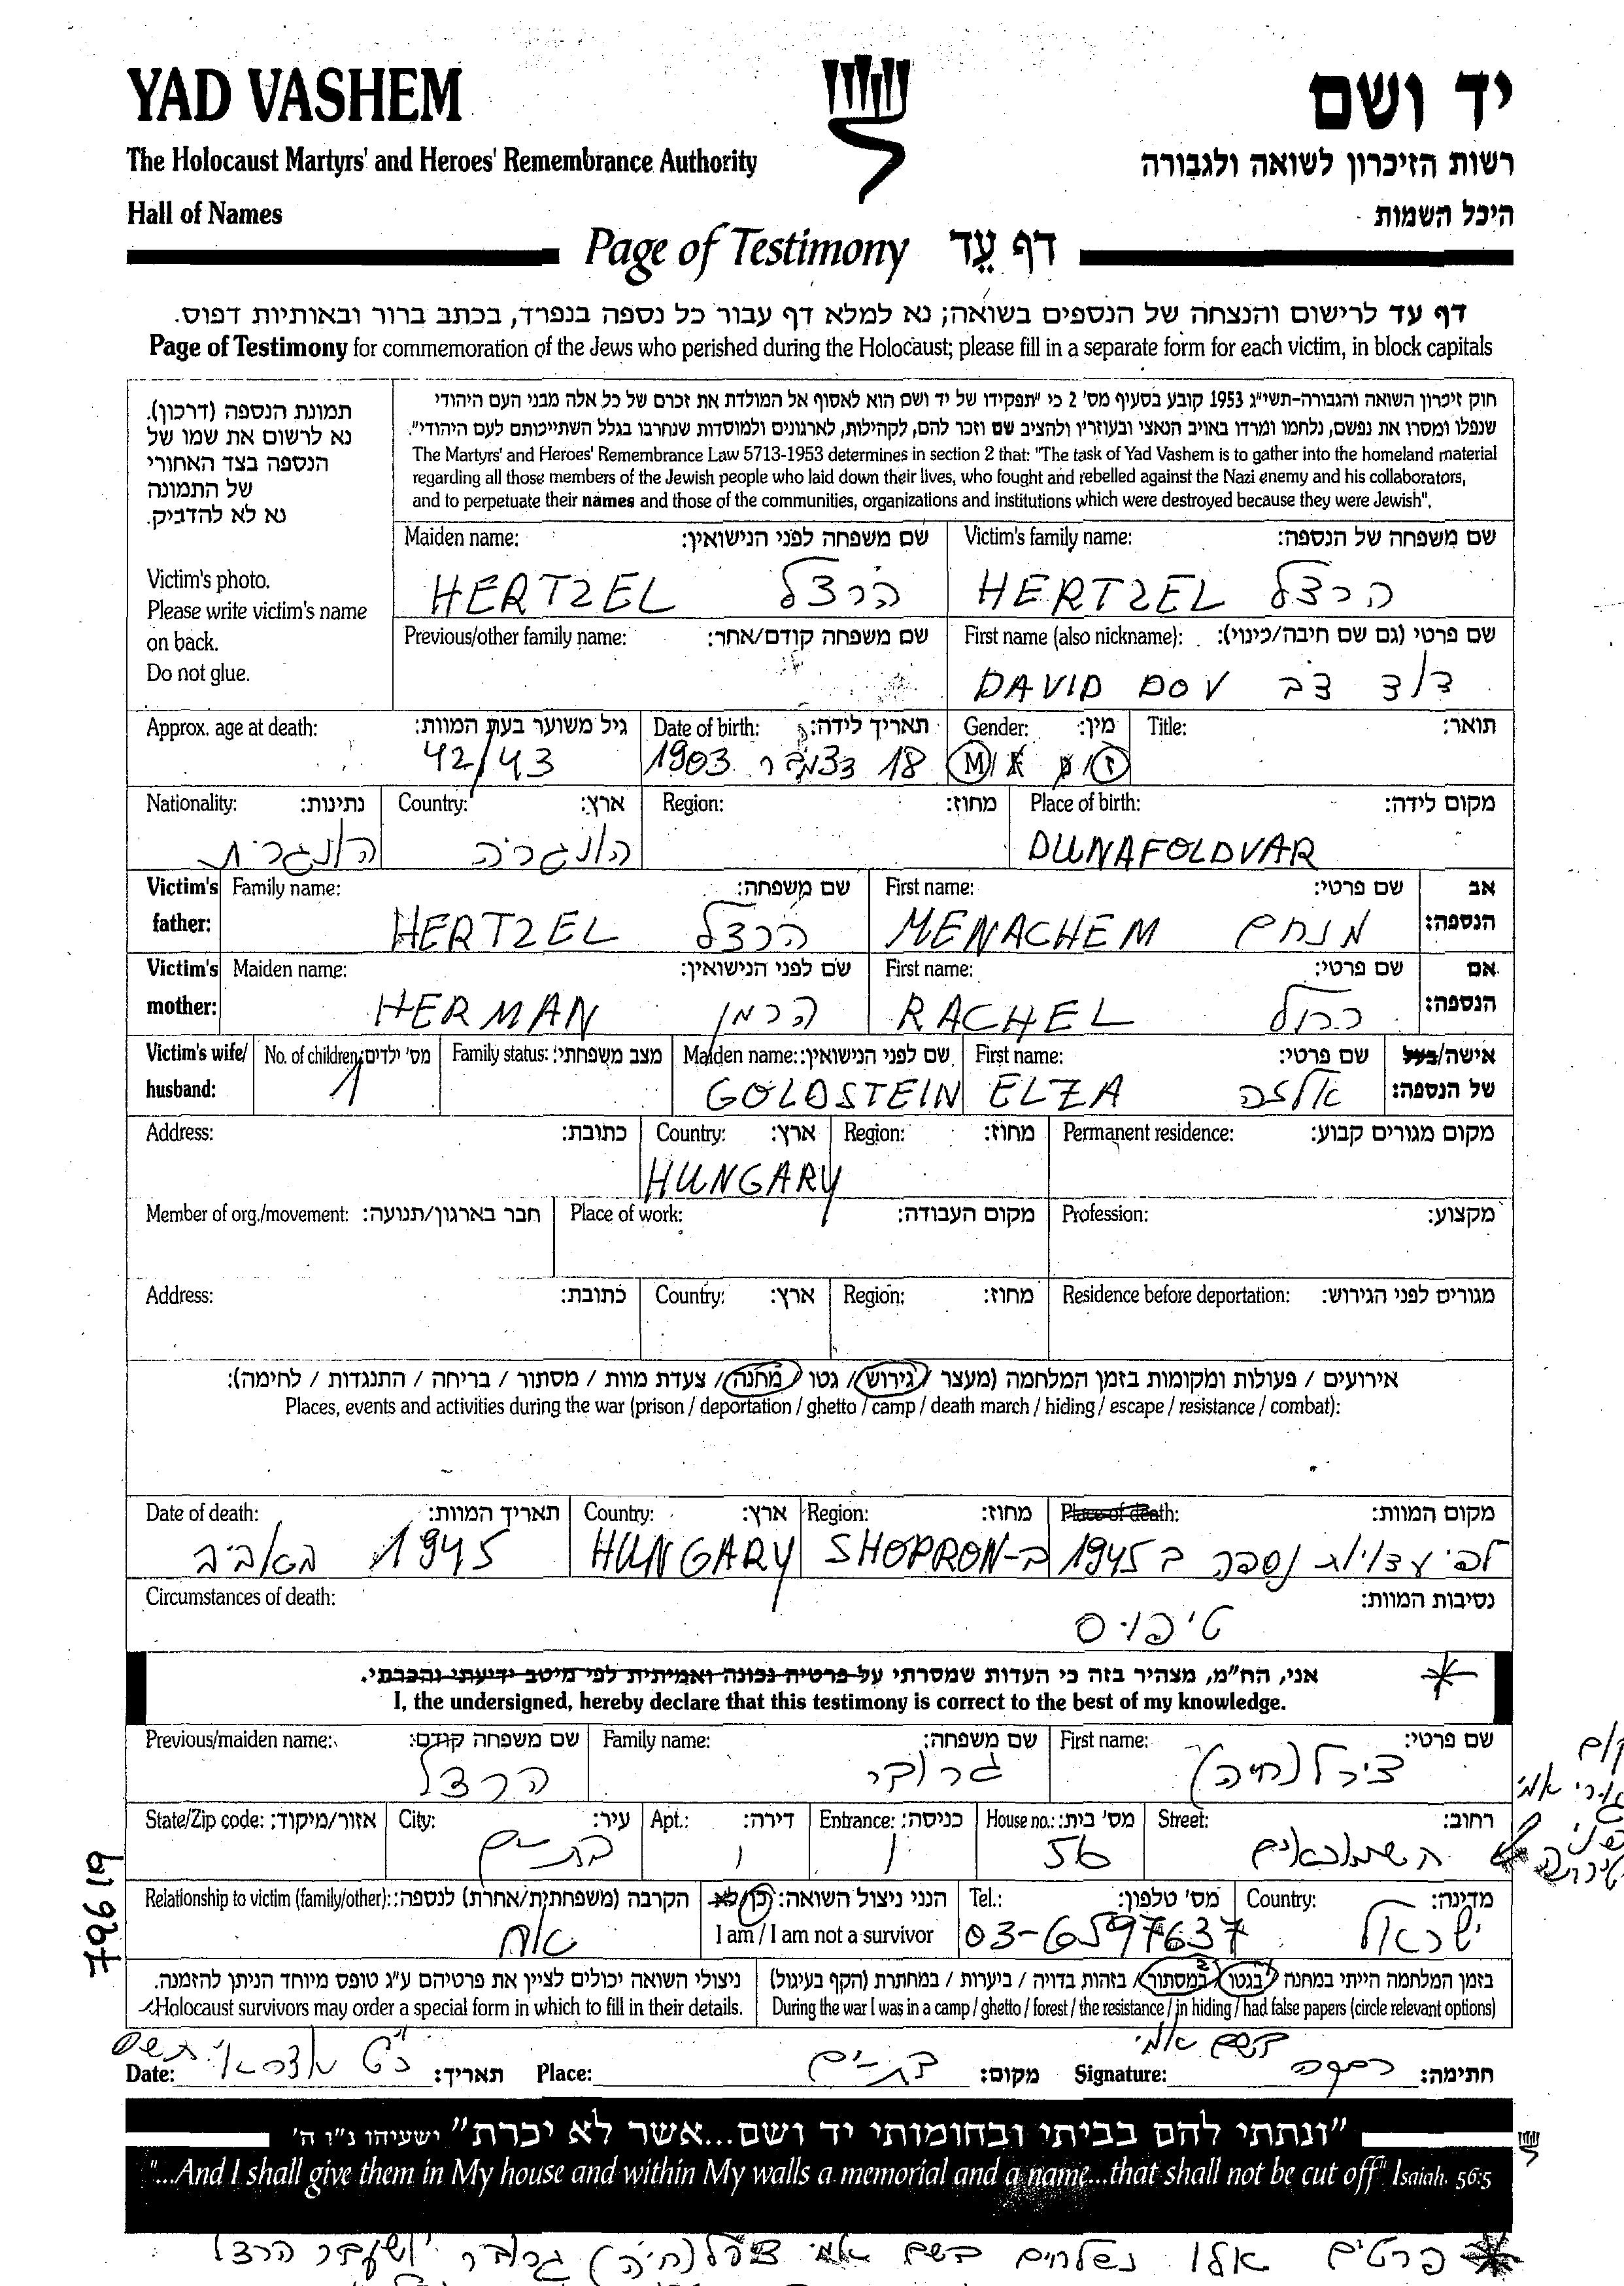 YAD VASHEM
יד ושם
The Holocaust Martyrs' and Heroes' Remembrance Authority
רשות הזיכרון לשואה ולגבורה
Hall of Names
היכל השמות
Page of Testimony דף עֵד
דף עד לרישום והנצחה של הנספים בשואה; נא למלא דף עבור כל נספה בנפרד, בכתב ברור ובאותיות דפוס.
Page of Testimony for commemoration of the Jews who perished during the Holocaust; please fill in a separate form for each victim, in block capitals
תמונת הנספה (דרכון).
נא לרשום את שמו של
הנספה בצד האחורי
של התמונה
נא לא להדביק.
Victim's photo.
Please write victim's name
on back.
Do not glue.
חוק זיכרון השואה והגבורה-תשי"ג 1953 קובע בסעיף מס' 2 כי "תפקידו של יד ושם הוא לאסוף אל המולדת את זכרם של כל אלה מבני העם היהודי
שנפלו ומסרו את נפשם, נלחמו ומרדו באויב הנאצי ובעוזריו ולהציב שם וזכר להם, לקהילות, לארגונים ולמוסדות שנחרבו בגלל השתייכותם לעם היהודי".
The Martyrs' and Heroes' Remembrance Law 5713-1953 determines in section 2 that: "The task of Yad Vashem is to gather into the homeland material
regarding all those members of the Jewish people who laid down their lives, who fought and rebelled against the Nazi enemy and his collaborators,
and to perpetuate their names and those of the communities, organizations and institutions which were destroyed because they were Jewish".
Maiden name: שם משפחה לפני הנישואין: Victim's family name: שם משפחה של הנספה:
HERTZEL הרצל HERTZEL הרצל
Previous/other family name: שם משפחה קודם/אחר: First name (also nickname): שם פרטי (גם שם חיבה/כינוי):
DAVID DOV דוד דב
Approx. age at death: גיל משוער בעת המוות: Date of birth: תאריך לידה: Gender: מין: Title: תואר:
42/43 18 דצמבר 1903 M/F נ/ז
Nationality: נתינות: Country: ארץ: Region: מחוז: Place of birth: מקום לידה:
הונגרית הונגריה DUNAFOLDVAR
Victim's father: Family name: שם משפחה: First name: שם פרטי: אב הנספה:
HERTZEL הרצל MENACHEM מנחם
Victim's mother: Maiden name: שם לפני הנישואין: First name: שם פרטי: אם הנספה:
HERMAN הרמן RACHEL רחל
Victim's wife/ husband: No. of children: מס' ילדים: Family status: מצב משפחתי: Maiden name: שם לפני הנישואין: First name: שם פרטי: אישה/בעל של הנספה:
1 GOLDSTEIN ELZA אלזה
Address: כתובת: Country: ארץ: Region: מחוז: Permanent residence: מקום מגורים קבוע:
HUNGARY
Member of org./movement: חבר בארגון/תנועה: Place of work: מקום העבודה: Profession: מקצוע:
Address: כתובת: Country: ארץ: Region: מחוז: Residence before deportation: מגורים לפני הגירוש:
אירועים / פעולות ומקומות בזמן המלחמה (מעצר / גירוש / גטו / מחנה / צעדת מוות / מסתור / בריחה / התנגדות / לחימה):
Places, events and activities during the war (prison / deportation / ghetto / camp / death march / hiding / escape / resistance / combat):
Date of death: תאריך המוות: Country: ארץ: Region: מחוז: Place of death: מקום המוות:
באביב 1945 HUNGARY ב-SHOPRON לפי עדויות נספה ב 1945
Circumstances of death: נסיבות המוות:
טיפוס
אני, הח"מ, מצהיר בזה כי העדות שמסרתי על פרטיה נכונה ואמיתית לפי מיטב ידיעתי והכרתי.
I, the undersigned, hereby declare that this testimony is correct to the best of my knowledge.
Previous/maiden name: שם משפחה קודם: Family name: שם משפחה: First name: שם פרטי:
הרצל גרובר צירל (חיה)
State/Zip code: אזור/מיקוד: City: עיר: Apt.: דירה: Entrance: כניסה: House no.: מס' בית: Street: רחוב:
בת-ים 1 1 56 השמונאים
Relationship to victim (family/other): הקרבה (משפחתית/אחרת) לנספה: הנני ניצול השואה: כן/לא Tel.: מס' טלפון: Country: מדינה:
I am / I am not a survivor
אח 03-6597637 ישראל
ניצולי השואה יכולים לציין את פרטיהם ע"ג טופס מיוחד הניתן להזמנה. בזמן המלחמה הייתי במחנה / בגטו / במסתור / בזהות בדויה / ביערות / במחתרת (הקף בעיגול)
Holocaust survivors may order a special form in which to fill in their details. During the war I was in a camp / ghetto / forest / the resistance / in hiding / had false papers (circle relevant options)
בשם אמי
Date: תאריך: Place: בת-ים מקום: Signature: חתימה:
"ונתתי להם בביתי ובחומותי יד ושם...אשר לא יכרת" ישעיהו נ"ו ה'
"...And I shall give them in My house and within My walls a memorial and a name...that shall not be cut off" Isaiah. 56:5
פרטים אלו נשלחים בשם אמי צירל (חיה) גרובר הרצל
796 19